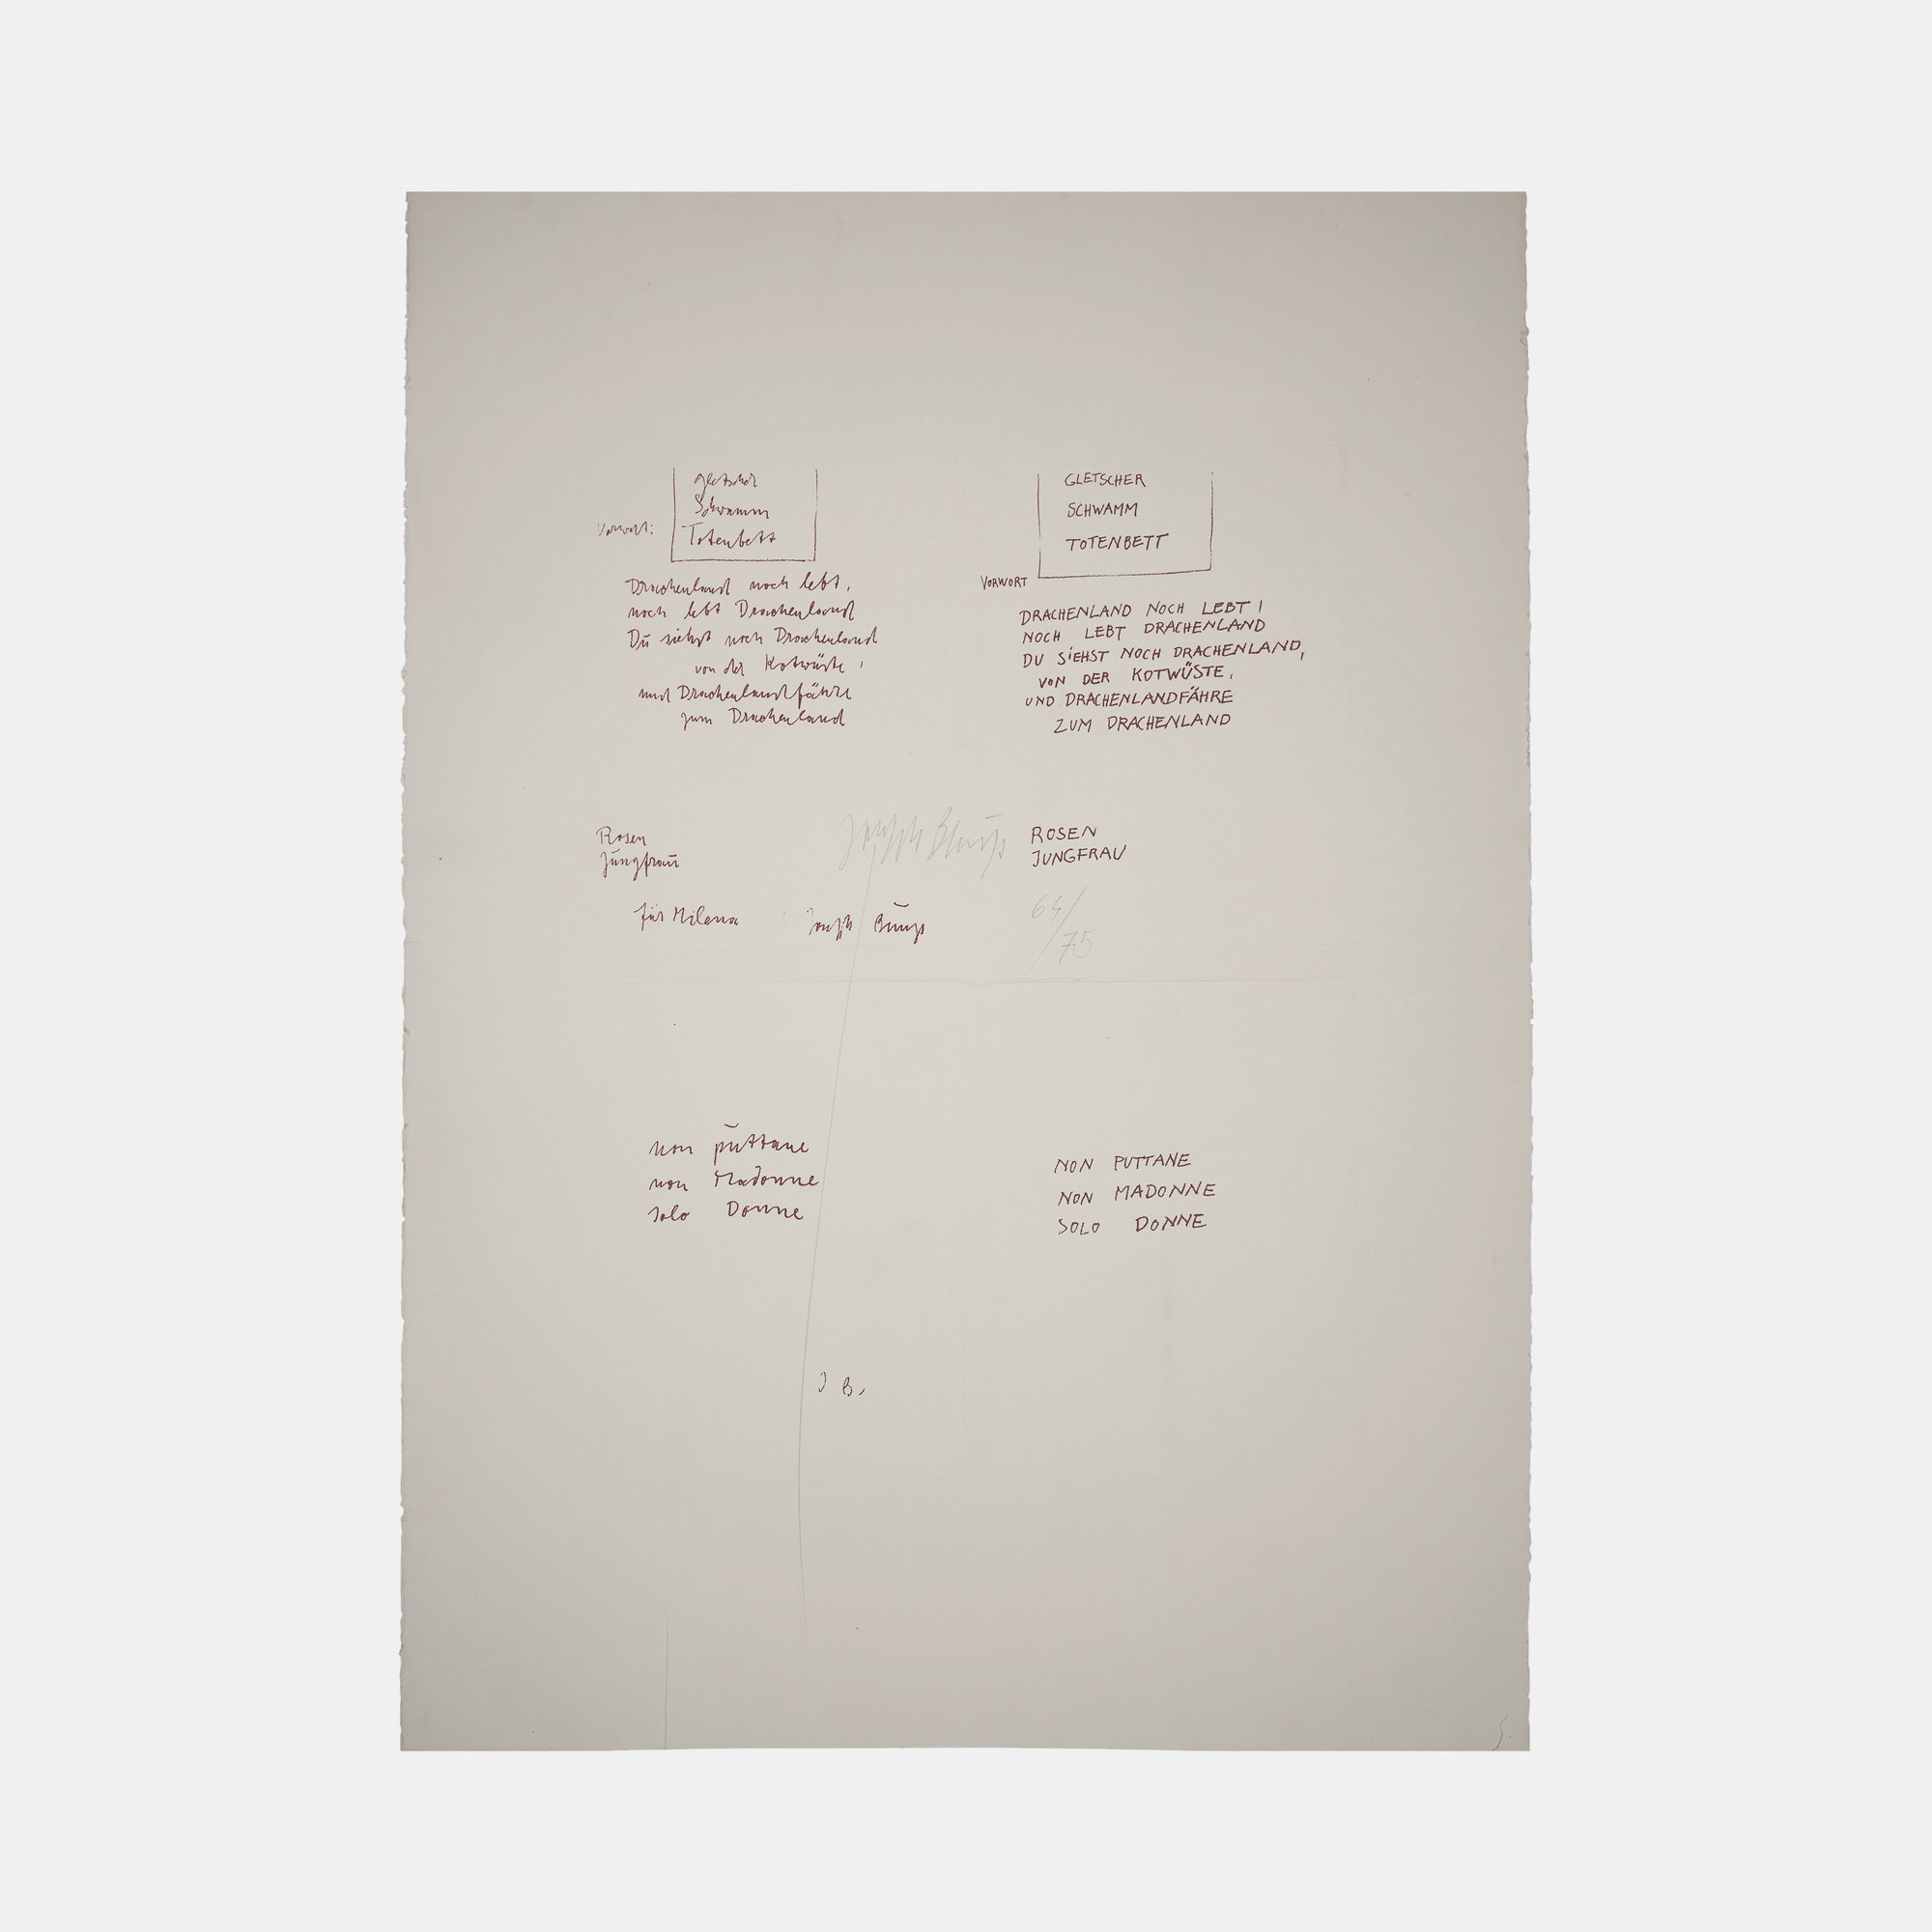 gletscher
Schwamm
Vorwort:
Totenbett
Drachenland noch lebt,
noch lebt Drachenland
Du siehst noch Drachenland
von der Kotwüste,
und Drachenlandfähre
zum Drachenland
GLETSCHER
SCHWAMM
TOTENBETT
VORWORT
DRACHENLAND NOCH LEBT,
NOCH LEBT DRACHENLAND
DU SIEHST NOCH DRACHENLAND,
VON DER KOTWÜSTE,
UND DRACHENLANDFÄHRE
ZUM DRACHENLAND
Rosen
Jungfrau
Joseph Beuys
ROSEN
JUNGFRAU
für Milena
Joseph Beuys
64/
75
non puttane
non Madonne
solo Donne
NON PUTTANE
NON MADONNE
SOLO DONNE
J B.